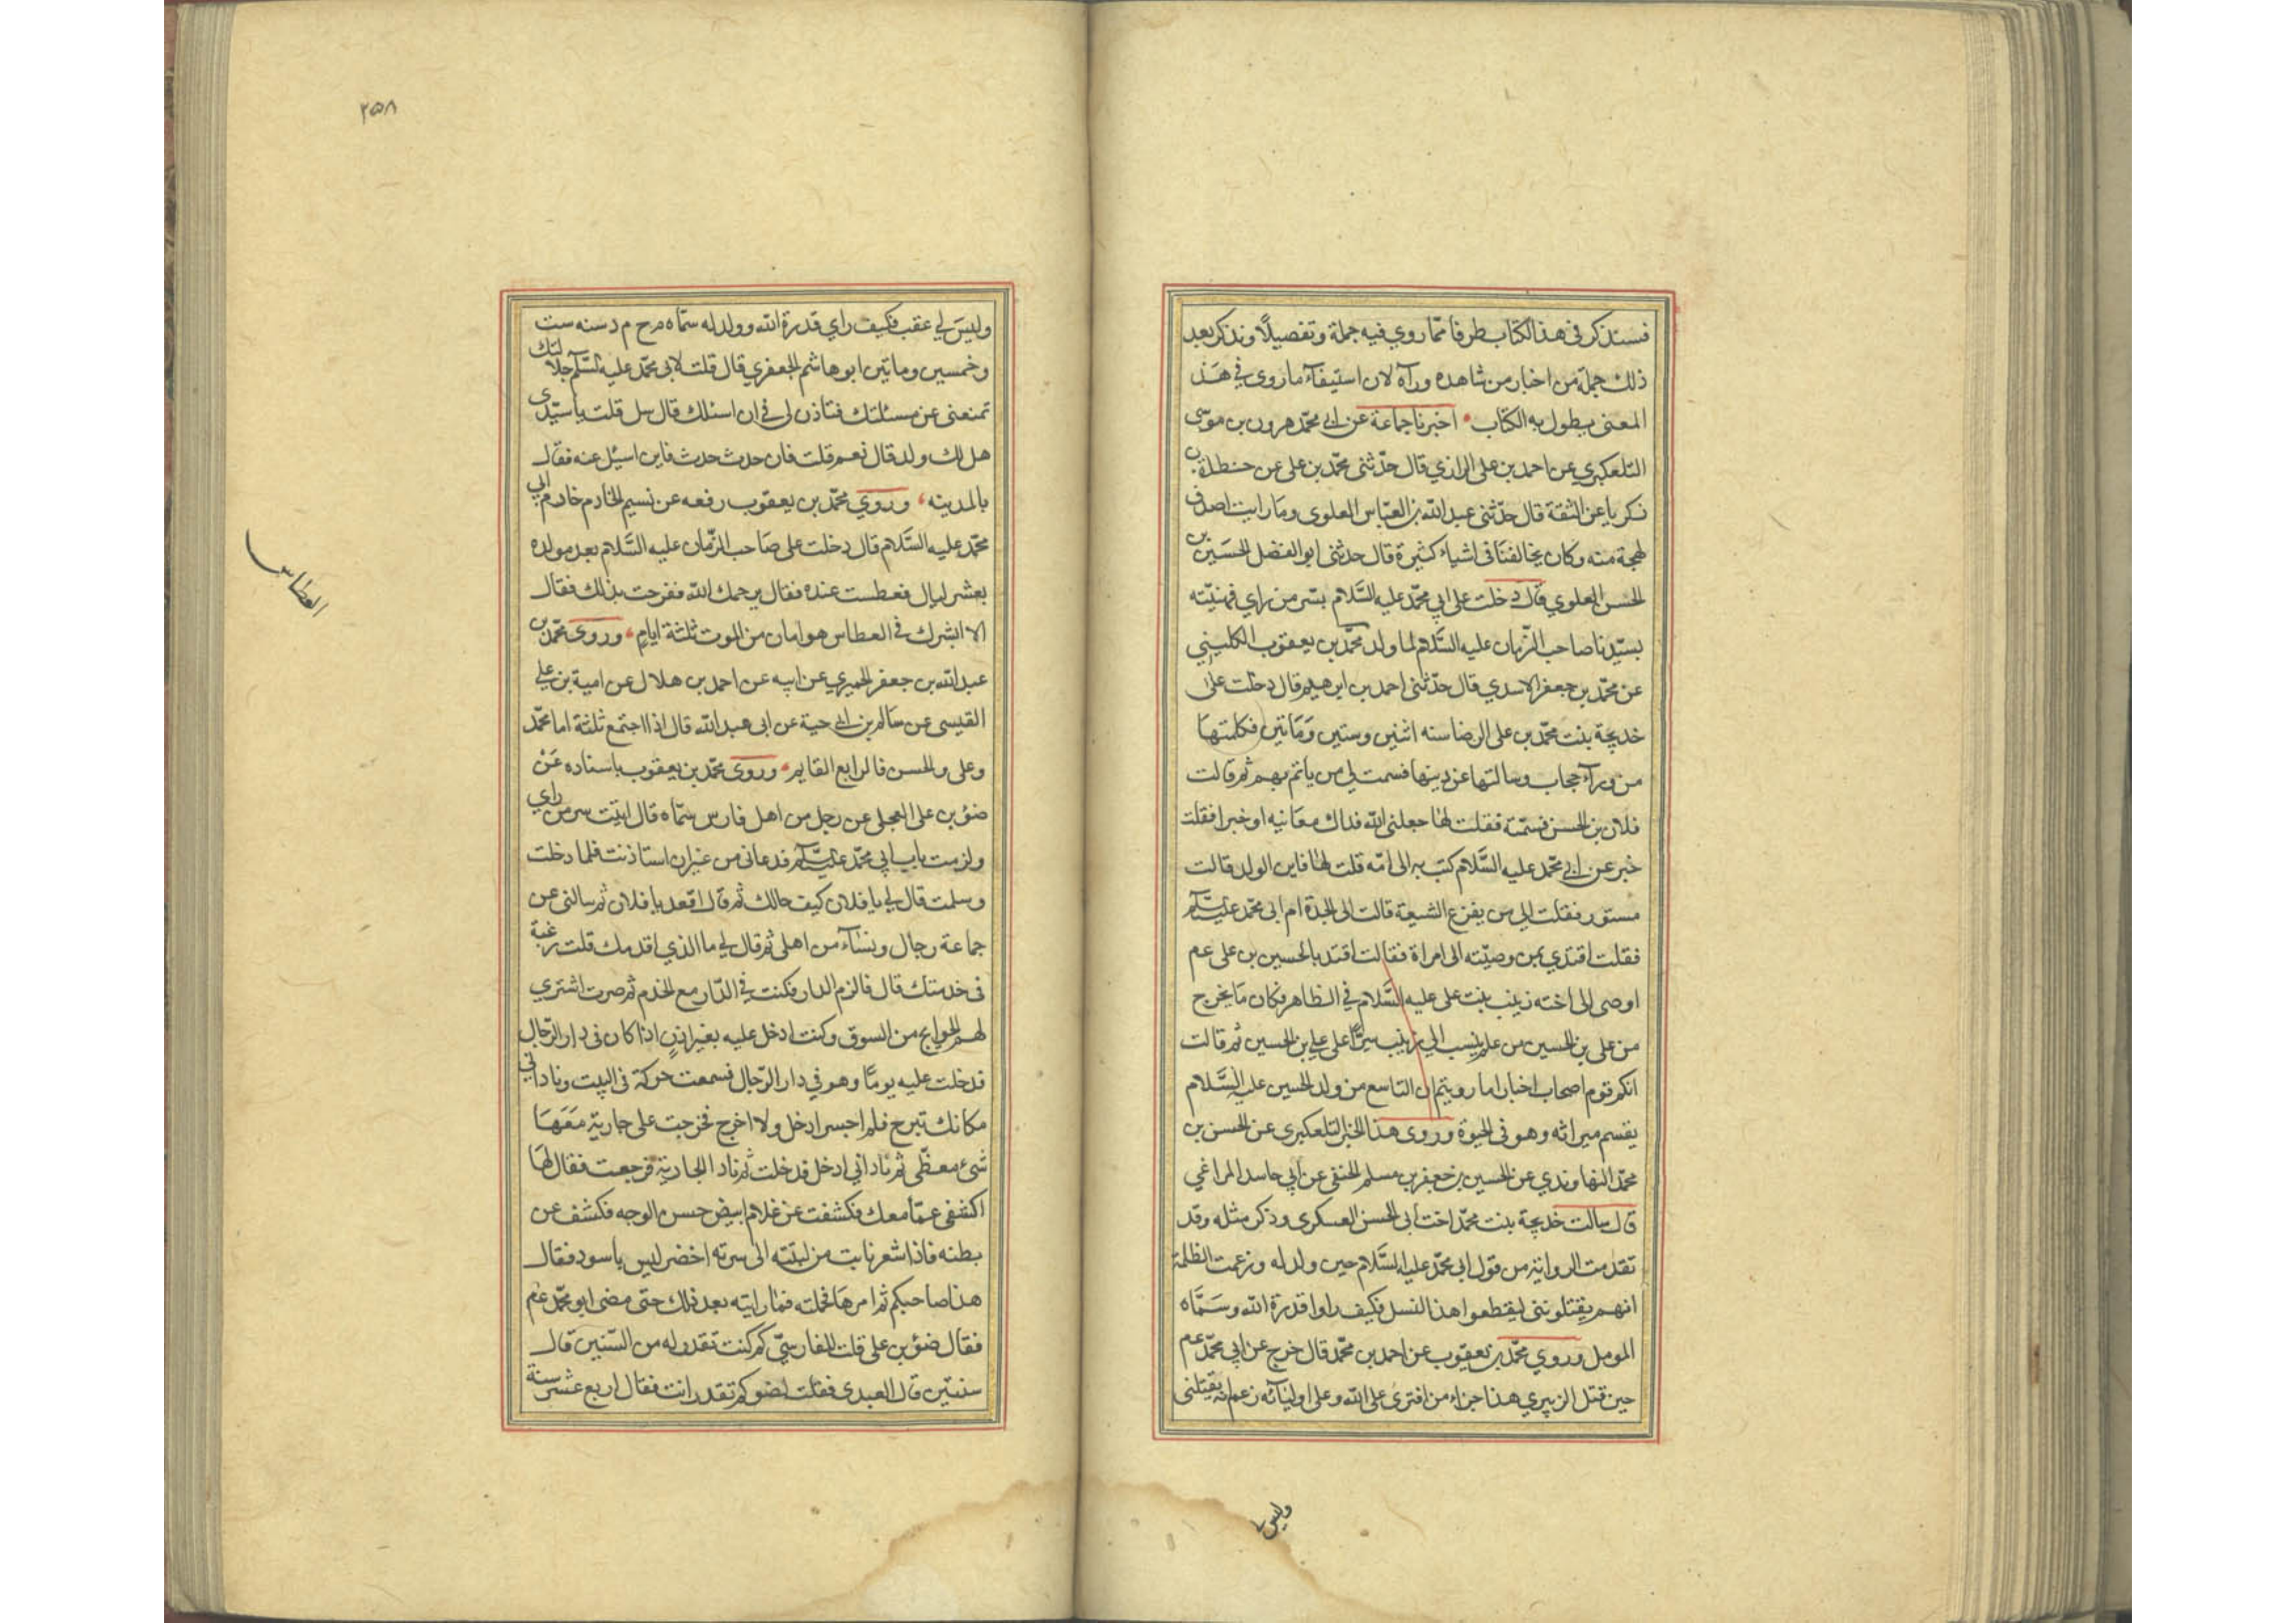 فسنذكر في هذا الكتاب طرفا مما روي فيه جملة وتفصيلا ونذكر بعد
ذلك جملة من اخبار من شاهده ورآه لان استيفاء ما روى في هذ
المعنى يطول به الكتاب اخبرنا جماعة عن ابي محمد هرون بن موسى
التلعكبري عن احمد بن على الرازي قال حدثنى محمد بن على عن حنظلة بن
زكريا عن الثقة قال حدثنى عبد الله بن العباس العلوى وما رايت اصدق
لهجة منه وكان يخالفنا فى اشياء كثيرة قال حدثنى ابو الفضل الحسين بن
الحسن العلوي قال دخلت على ابي محمد عليه السلام بسر من راي فهنيته
بسيدنا صاحب الزمان عليه السلام لما ولد محمد بن يعقوب الكليني
عن محمد بن جعفر الاسدي قال حدثنى احمد بن ابرهيم قال دخلت على
خديجة بنت محمد بن على الرضا سنه اثنين وستين وماتين فكلمتها
من ورآء حجاب وسالتها عن دينها فسمت لي من ياتم بهم ثم قالت
فلان بن الحسن فسمته فقلت لها جعلنى الله فداك معانيه او خبرا فقلت
خبر عن ابي محمد عليه السلام كتب به الى امه قلت لها فاين الولد قالت
مستور فقلت الى من يفزع الشيعة قالت الى الجدة ام ابى محمد عليه السلام
فقلت اقتدي بمن وصيته الى امراة فقالت اقتد بالحسين بن على عم
اوصى الى اخته زينب بنت على عليه السلام في الظاهر فكان ما يخرج
من على بن الحسين من علم ينسب الى زينب سترا على علي بن الحسين ثم قالت
انكم قوم اصحاب اخبار اما رويتم ان التاسع من ولد الحسين عليه السلام
يقسم ميراثه وهو فى الحيوة وروى هذا الخبر التلعكبرى عن الحسن بن
محمد النهاوندي عن الحسين بن جعفر بن مسلم الحنفى عن ابي حامد المراغي
قال سالت خديجة بنت محمد اخت ابى الحسن العسكرى وذكر مثله وقد
تقدمت الرواية من قول ابى محمد عليه السلام حين ولد له وزعمت الظلمة
انهم يقتلوننى ليقطعوا هذا النسل فكيف راوا قدرة الله وسماه
المومل وروي محمد بن يعقوب عن احمد بن محمد قال خرج عن ابي محمد عم
حين قتل الزبيري هذا جزاء من افترى على الله وعلى اوليائه زعم انه يقتلنى
وليس لي
٢٥٨
وليس لي عقب فكيف راي قدرة الله وولد له سماه م ح م د سنه ست
وخمسين وماتين ابو هاشم الجعفري قال قلت لابى محمد عليه السلم جلالتك
تمنعنى عن مسئلتك فتاذن لى في ان اسئلك قال سل قلت يا سيدى
هل لك ولد قال نعم قلت فان حدث حدث فاين اسئل عنه فقال
بالمدينه وروي محمد بن يعقوب رفعه عن نسيم الخادم خادم ابي
محمد عليه السلام قال دخلت على صاحب الزمان عليه السلام بعد مولده
بعشر ليال فعطست عنده فقال يرحمك الله ففرحت بذلك فقال
الا ابشرك في العطاس هو امان من الموت ثلثة ايام وروى محمد بن
عبد الله بن جعفر الحميري عن ابيه عن احمد بن هلال عن امية بن علي
القيسى عن سالم بن ابي حية عن ابى عبد الله قال اذا اجتمع ثلثة اما محمد
وعلى والحسن فالرابع القايم وروى محمد بن يعقوب باسناده عن
ضؤ بن على العجلى عن رجل من اهل فارس سماه قال اتيت سر من راي
ولزمت باب ابي محمد عليه السلم فدعانى من غير ان استاذنت فلما دخلت
وسلمت قال لي يا فلان كيف حالك ثم قال اقعد يا فلان ثم سالنى عن
جماعة رجال ونساء من اهلى ثم قال لي ما الذي اقدمك قلت رغبة
فى خدمتك قال فالزم الدار فكنت في الدار مع الخدم ثم صرت اشتري
لهم الحوايج من السوق وكنت ادخل عليه بغير اذن اذا كان فى دار الرجال
فدخلت عليه يوما وهو في دار الرجال فسمعت حركة فى البيت ونادانى
مكانك تبرح فلم اجسر ادخل ولا اخرج فخرجت على جارية معها
شئ مغطى ثم ناداني ادخل فدخلت ثم ناد الجارية فرجعت فقال لها
اكشفى عما معك فكشفت عن غلام ابيض حسن الوجه فكشف عن
بطنه فاذا شعر نابت من لبته الى سرته اخضر ليس باسود فقال
هذا صاحبكم ثم امرها فحملته فما رايته بعد ذلك حتى مضى ابو محمد عم
فقال ضؤ بن على قلت للفارسي كم كنت تقدر له من السنين قال
سنتين قال العبدى فقلت لضو كم تقدر انت فقال اربع عشر سنة
العطاس